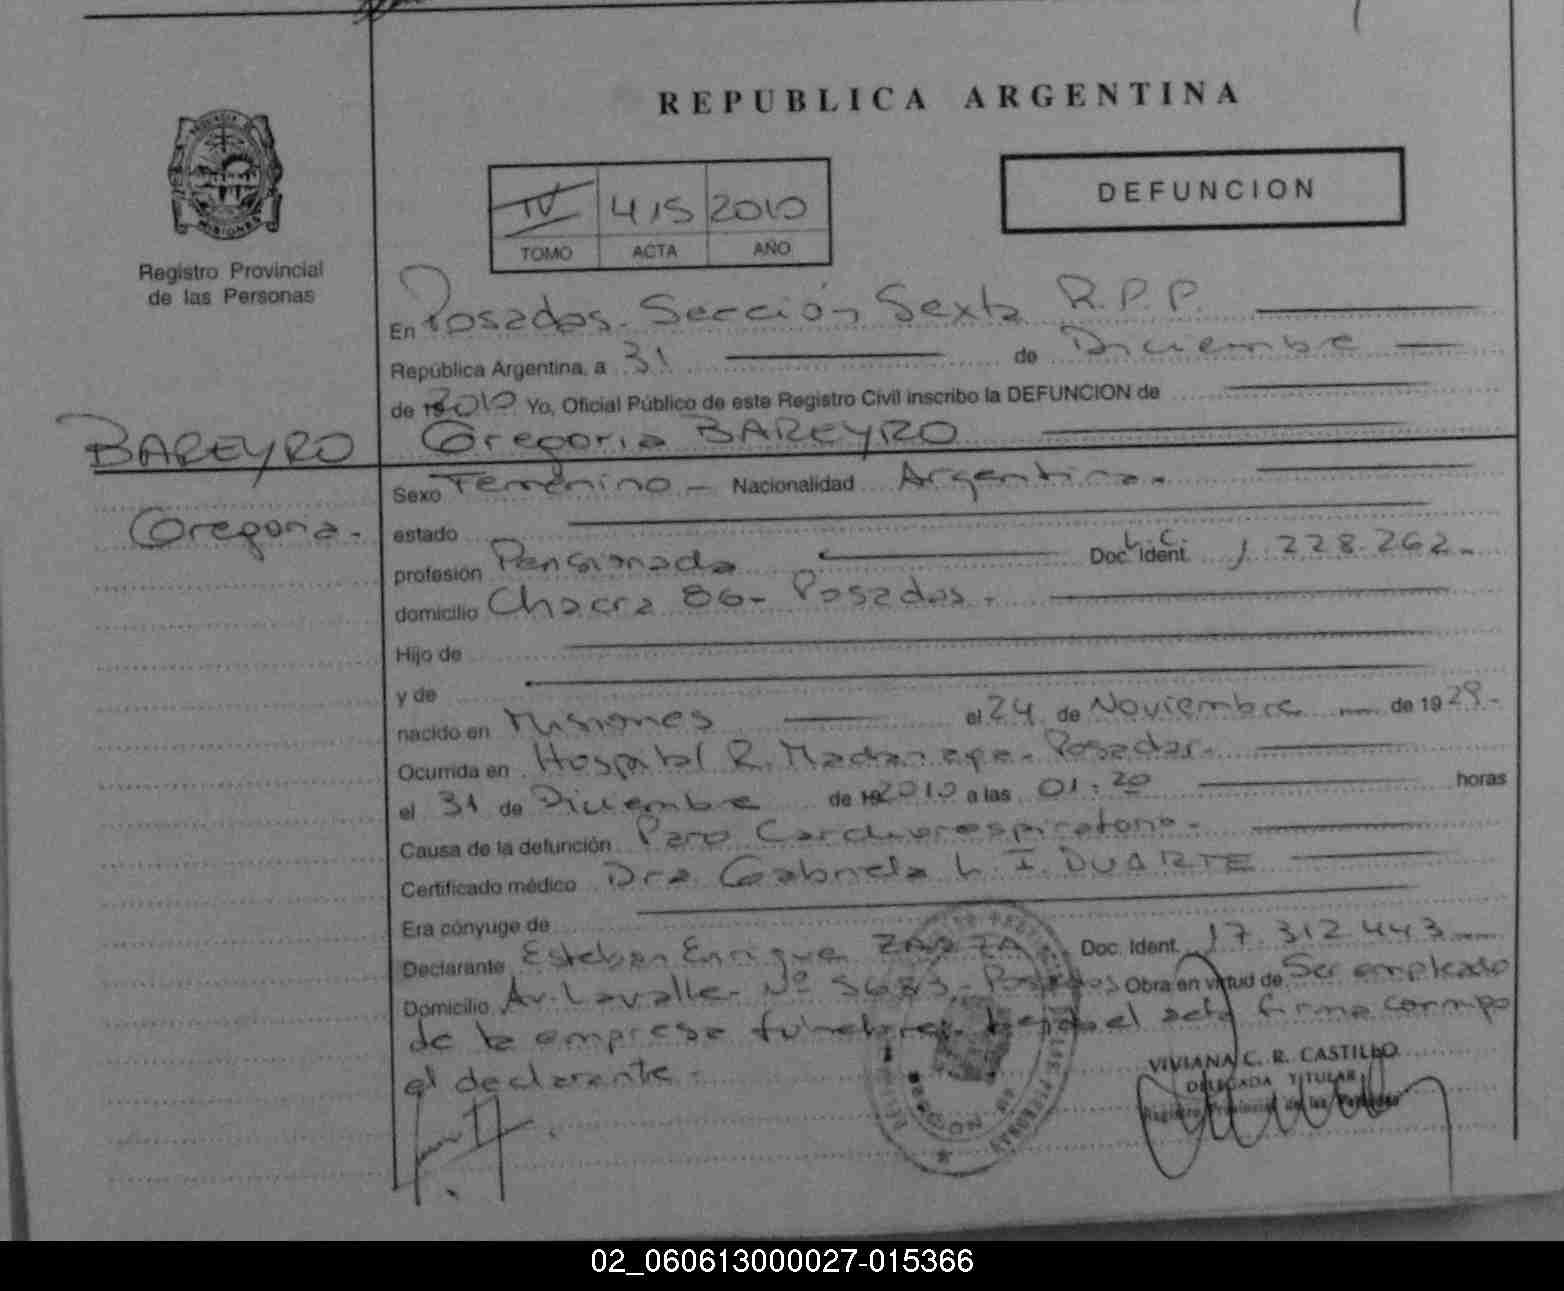 REPUBLICA ARGENTINA
DEFUNCION
IV 415 2010
TOMO ACTA AÑO
PROVINCIA DE MISIONES
Registro Provincial
de las Personas
En Posadas. Sección Sexta R.P.P.
República Argentina, a 31 de Diciembre
de 2010 Yo, Oficial Público de este Registro Civil inscribo la DEFUNCION de
Gregoria BAREYRO
BAREYRO
Gregoria.
Sexo Femenino - Nacionalidad Argentina.
estado
profesión Pensionada Doc. Ident. L.C. 1.228.262.
domicilio Chacra 86- Posadas.
Hijo de
y de
nacido en Misiones el 24 de Noviembre de 1929.
Ocurrida en Hospital R. Madariaga. Posadas.
el 31 de Diciembre de 2010 a las 01:20 horas
Causa de la defunción Paro Cardiorespiratorio.
Certificado médico Dra. Gabriela L. I. DUARTE
Era cónyuge de
Declarante Esteban Enrique ZARZA Doc. Ident. 17.312.443
Domicilio Av. Lavalle Nº 5683- Posadas Obra en virtud de Ser empleado
de la empresa funebre. el acta firma conmigo
el declarante.
VIVIANA C. R. CASTILLO
DELEGADA TITULAR
Registro Provincial de las Personas
02_060613000027-015366